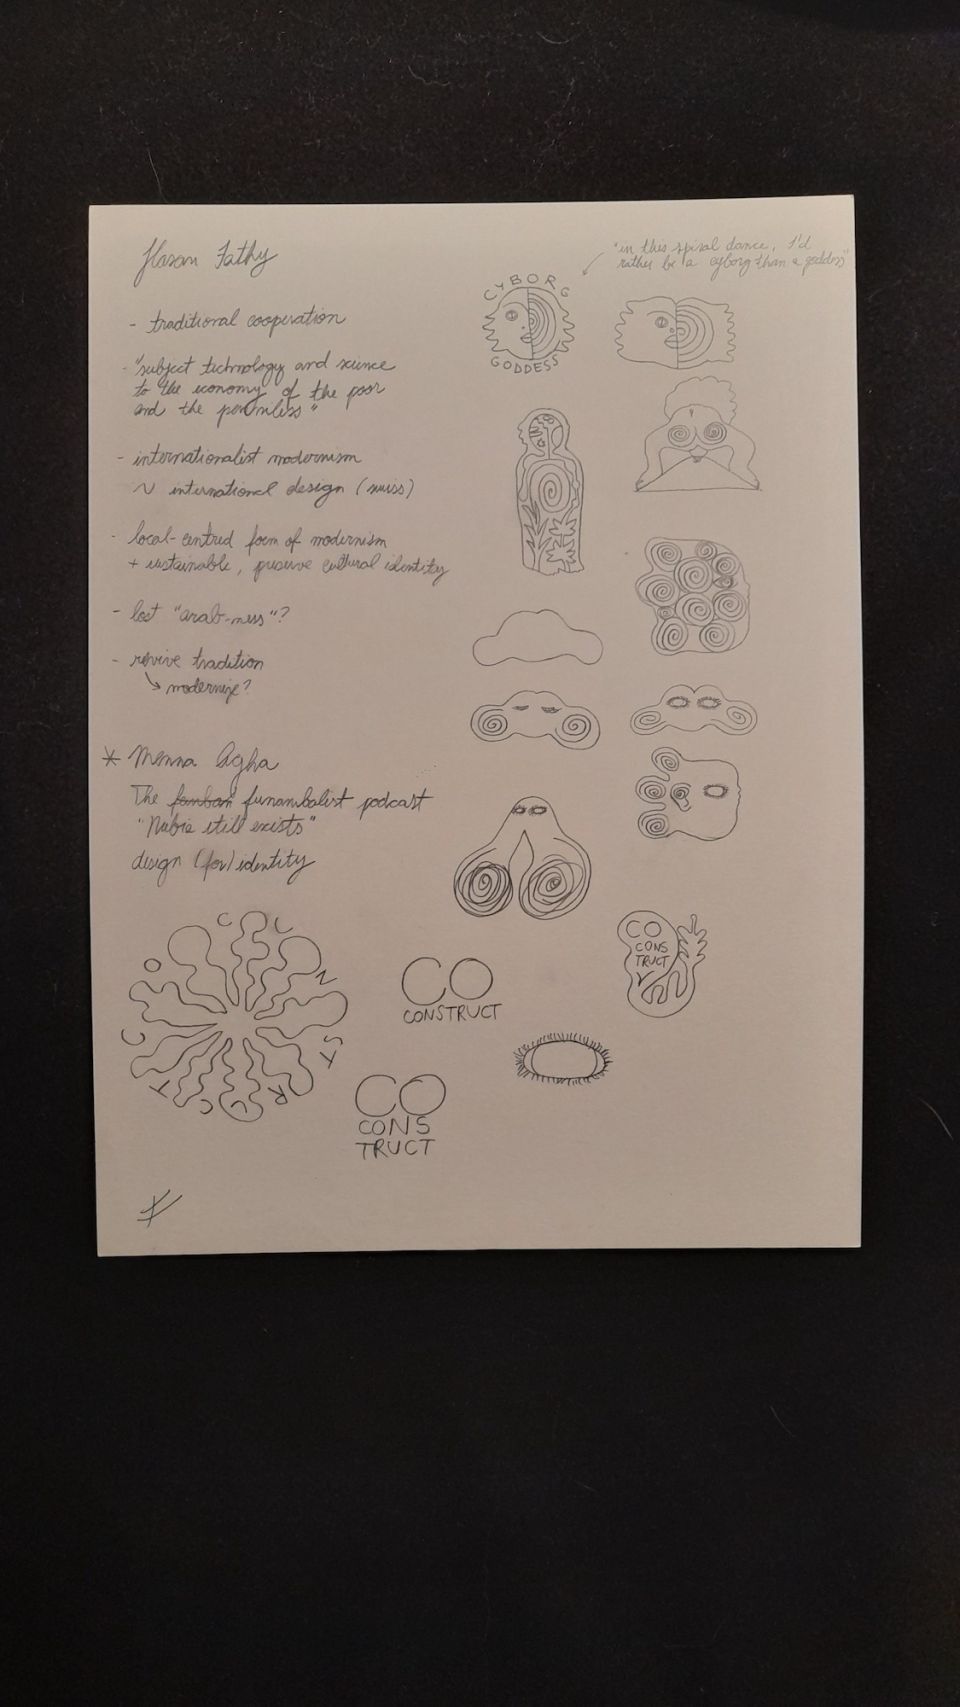 Hasan Fathy
- traditional cooperation
- "subject technology and science
to the economy of the poor
and the penniless"
- internationalist modernism
~ international design (swiss)
- local-centred form of modernism
+ sustainable, preserve cultural identity
- lost "arab-ness"?
- revive tradition
↳ modernize?
* Menna Agha
The funambalist podcast
"Nubia still exists"
design (for) identity
"in this spiral dance, I'd
rather be a cyborg than a goddess"
CYBORG
GODDESS
CO
CONS
TRUCT
CO
CONSTRUCT
CO
CONS
TRUCT
C U N S Y R U C T C O